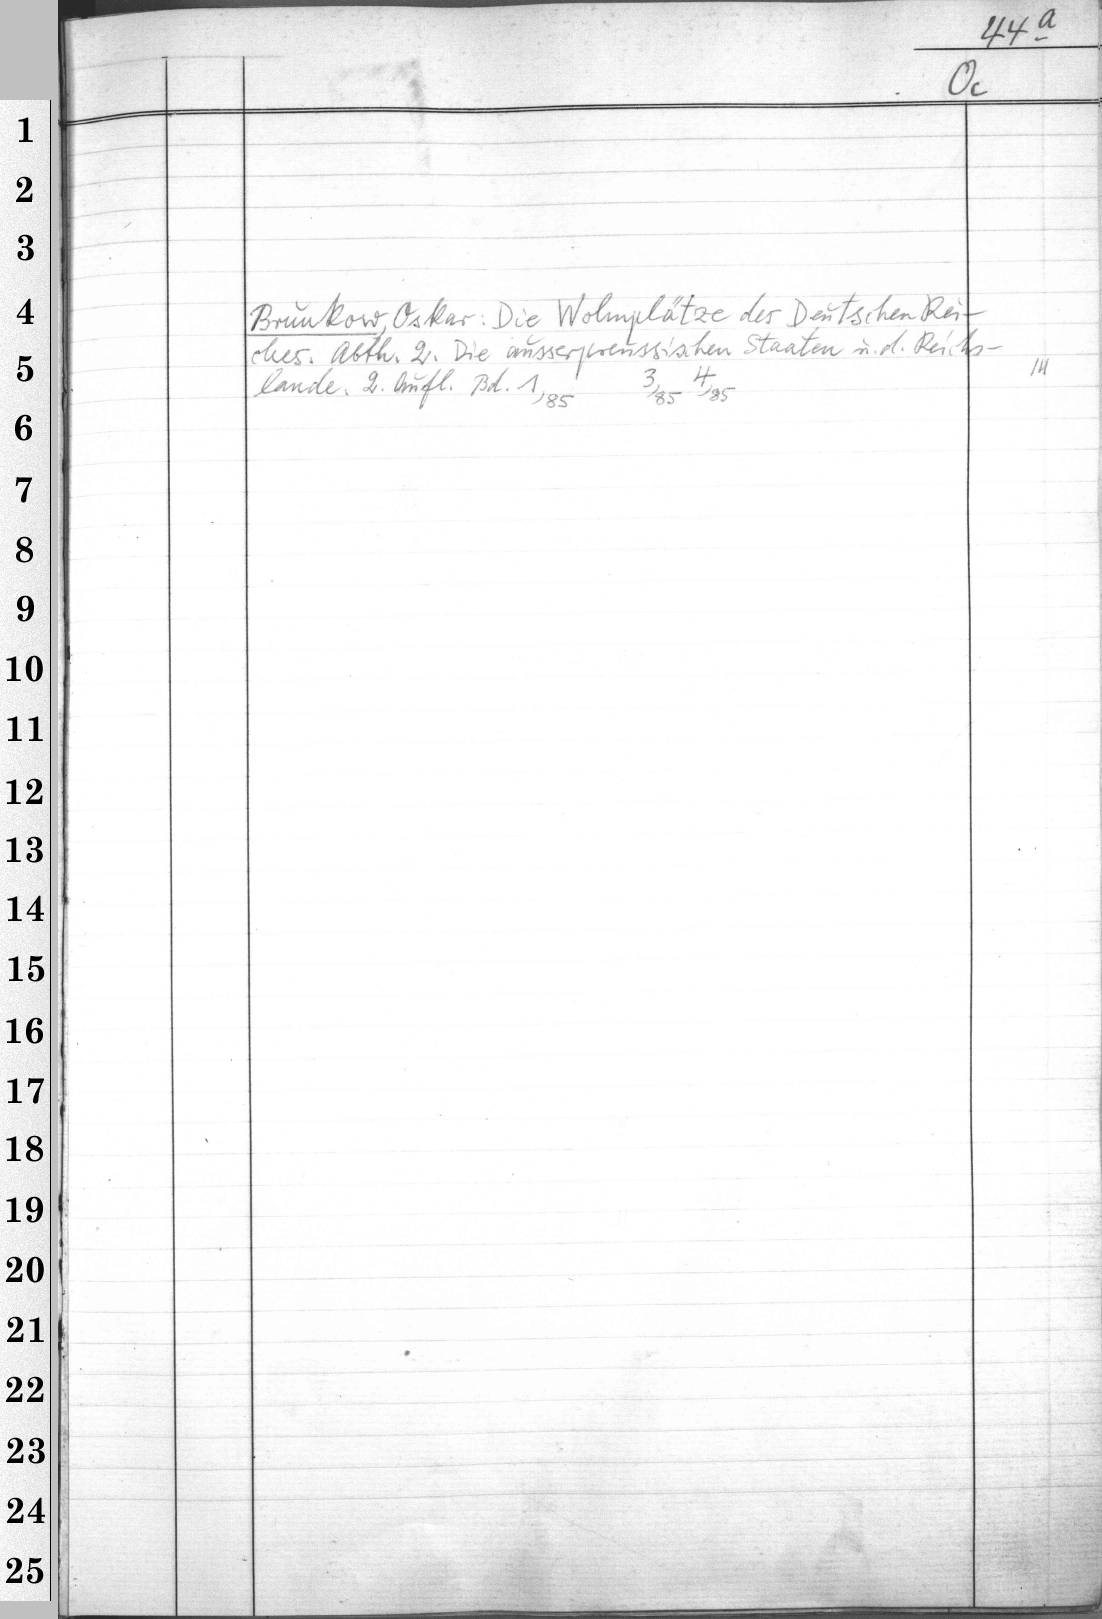 44a
Oc
1
2
3
4
Brunkow, Oskar: Die Wohnplätze des Deutschen Rei-
5
ches. Abth. 2. Die ausserpreussischen Staaten u. d. Reichs-
lande. 2. Aufl. Bd. 1,85 3,85 4,85
6
7
8
9
10
11
12
13
14
15
16
17
18
19
20
21
22
23
24
25